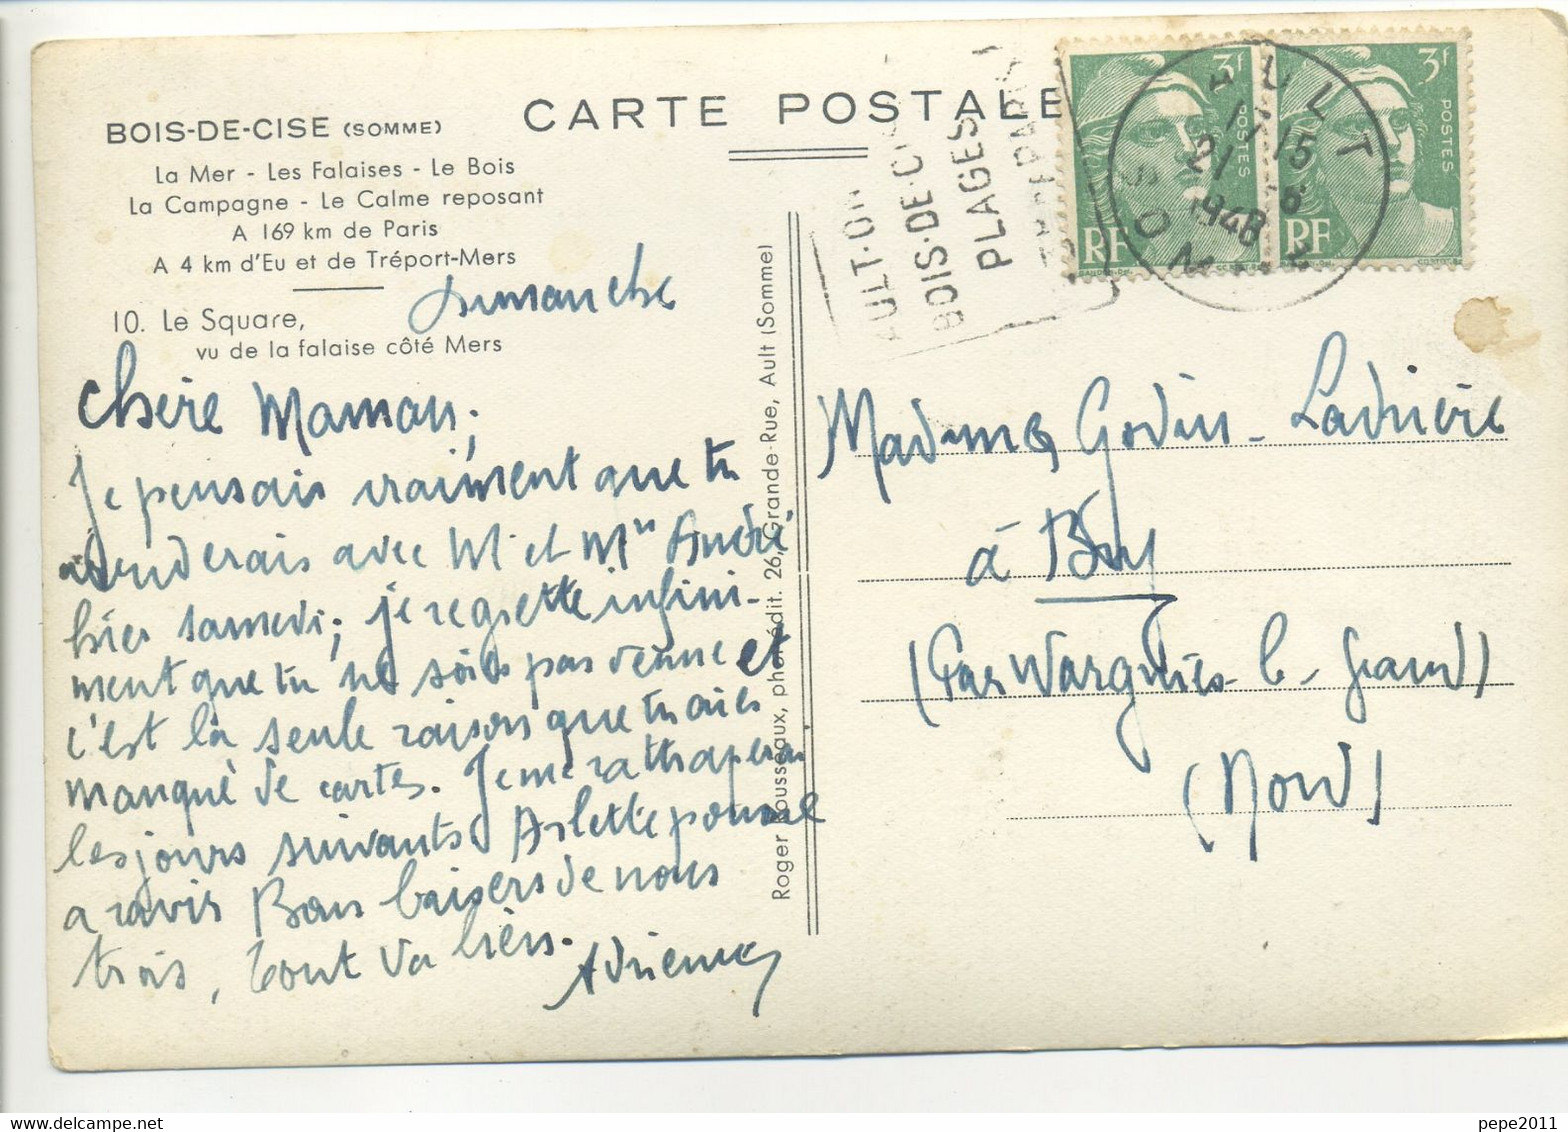 CARTE POSTALE
BOIS-DE-CISE (SOMME)
La Mer - Les Falaises - Le Bois
La Campagne - Le Calme reposant
A 169 km de Paris
A 4 km d'Eu et de Tréport-Mers
10. Le Square,
vu de la falaise côté Mers
Dimanche
Chère Maman,
Je pensais vraiment que tu
viendrais avec M et Mme André
hier samedi; je regrette infini-
ment que tu ne sois pas venue et
c'est là seule raison que tu aies
manqué de cartes. Je me rattraperai
les jours suivants Arlette pousse
a ravir Bons baisers de nous
trois, tout va bien.
Adrienne
Roger Rousseaux, photo édit. 26, Grande-Rue, Ault (Somme)
AULT-
BOIS-DE-CI
PLAGES
AULT
17 15
21 8
1948
SOMME
3f
POSTES
RF
3f
POSTES
RF
Madame Godin-Ladrière
à Bry
(Par Wargnies-le-Grand)
(Nord)
pepe2011